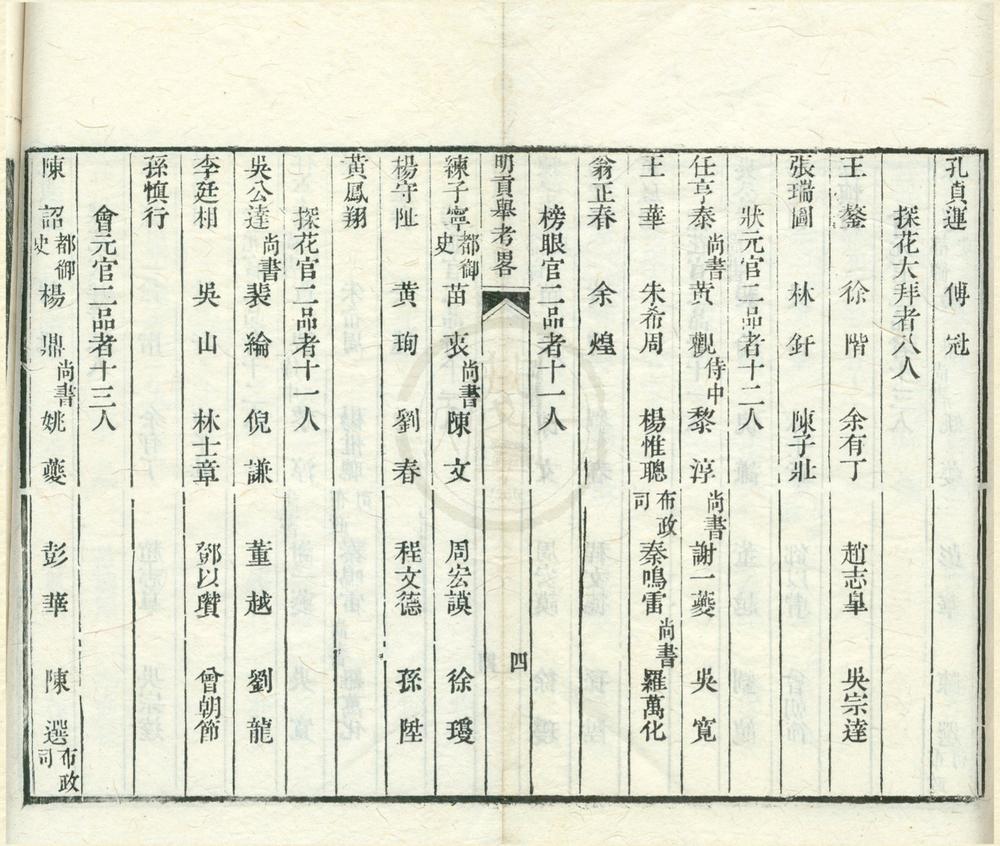 孔貞運 傅冠
探花大拜者八人
王鏊 徐階 余有丁 趙志臯 吳宗達
張瑞圖 林釬 陳子壯
狀元官二品者十二人
任亨泰尚書 黃觀侍中 黎淳尚書 謝一夔 吳寬
王華 朱希周 楊惟聰布政司 秦鳴雷尚書 羅萬化
翁正春 余煌
榜眼官二品者十一人
明貢舉考畧 四
練子寧都御史 苗衷尚書 陳文 周宏謨 徐瓊
楊守阯 黄珣 劉春 程文德 孫陞
黃鳳翔
探花官二品者十一人
吳公達尚書 裴綸 倪謙 董越 劉龍
李廷相 吳山 林士章 鄧以瓚 曾朝節
孫慎行
會元官二品者十三人
陳詔都御史 楊鼎尚書 姚夔 彭華 陳選布政司